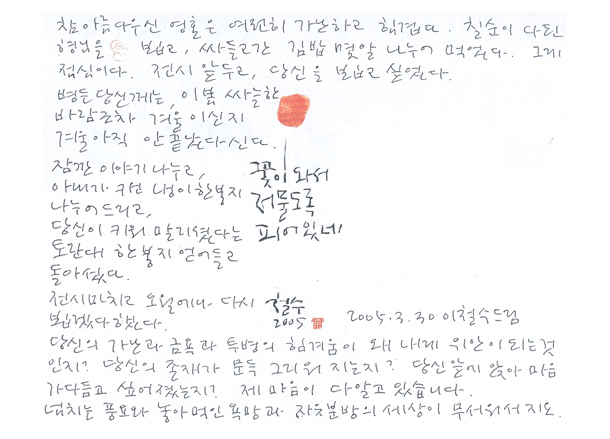 참아름다우신 영혼은 여전히 가난하고 힘겹다. 칠순이 다 된
형님을 뵙고, 싸들고간 김밥 몇알 나누어 먹었다. 그게
점심이다. 전시 앞두고, 당신을 뵙고 싶었다.
병든 당신께는, 이 봄 싸늘한
바람조차 겨울이신지
겨울 아직 안 끝났다신다.
잠깐 이야기 나누고,
아내가 키운 냉이 한봉지
나누어 드리고,
당신이 키워 말리셨다는
토란대 한봉지 얻어들고
돌아섰다.
전시마치고 오월에나 다시
뵙겠다 했다.
꽃이 와서
저물도록
피어있네
철수
2005
2005.3.30 이철수드림
당신의 가난과 금욕과 투병의 힘겨움이 왜 내게 위안이 되는것
인지? 당신의 존재가 문득 그리워 지는지? 당신앞에 앉아 마음
가다듬고 싶어졌는지? 제 마음이 다 알고 있습니다.
넘치는 풍요와 놓아먹인 욕망과 자유분방의 세상이 무서워서 지요.